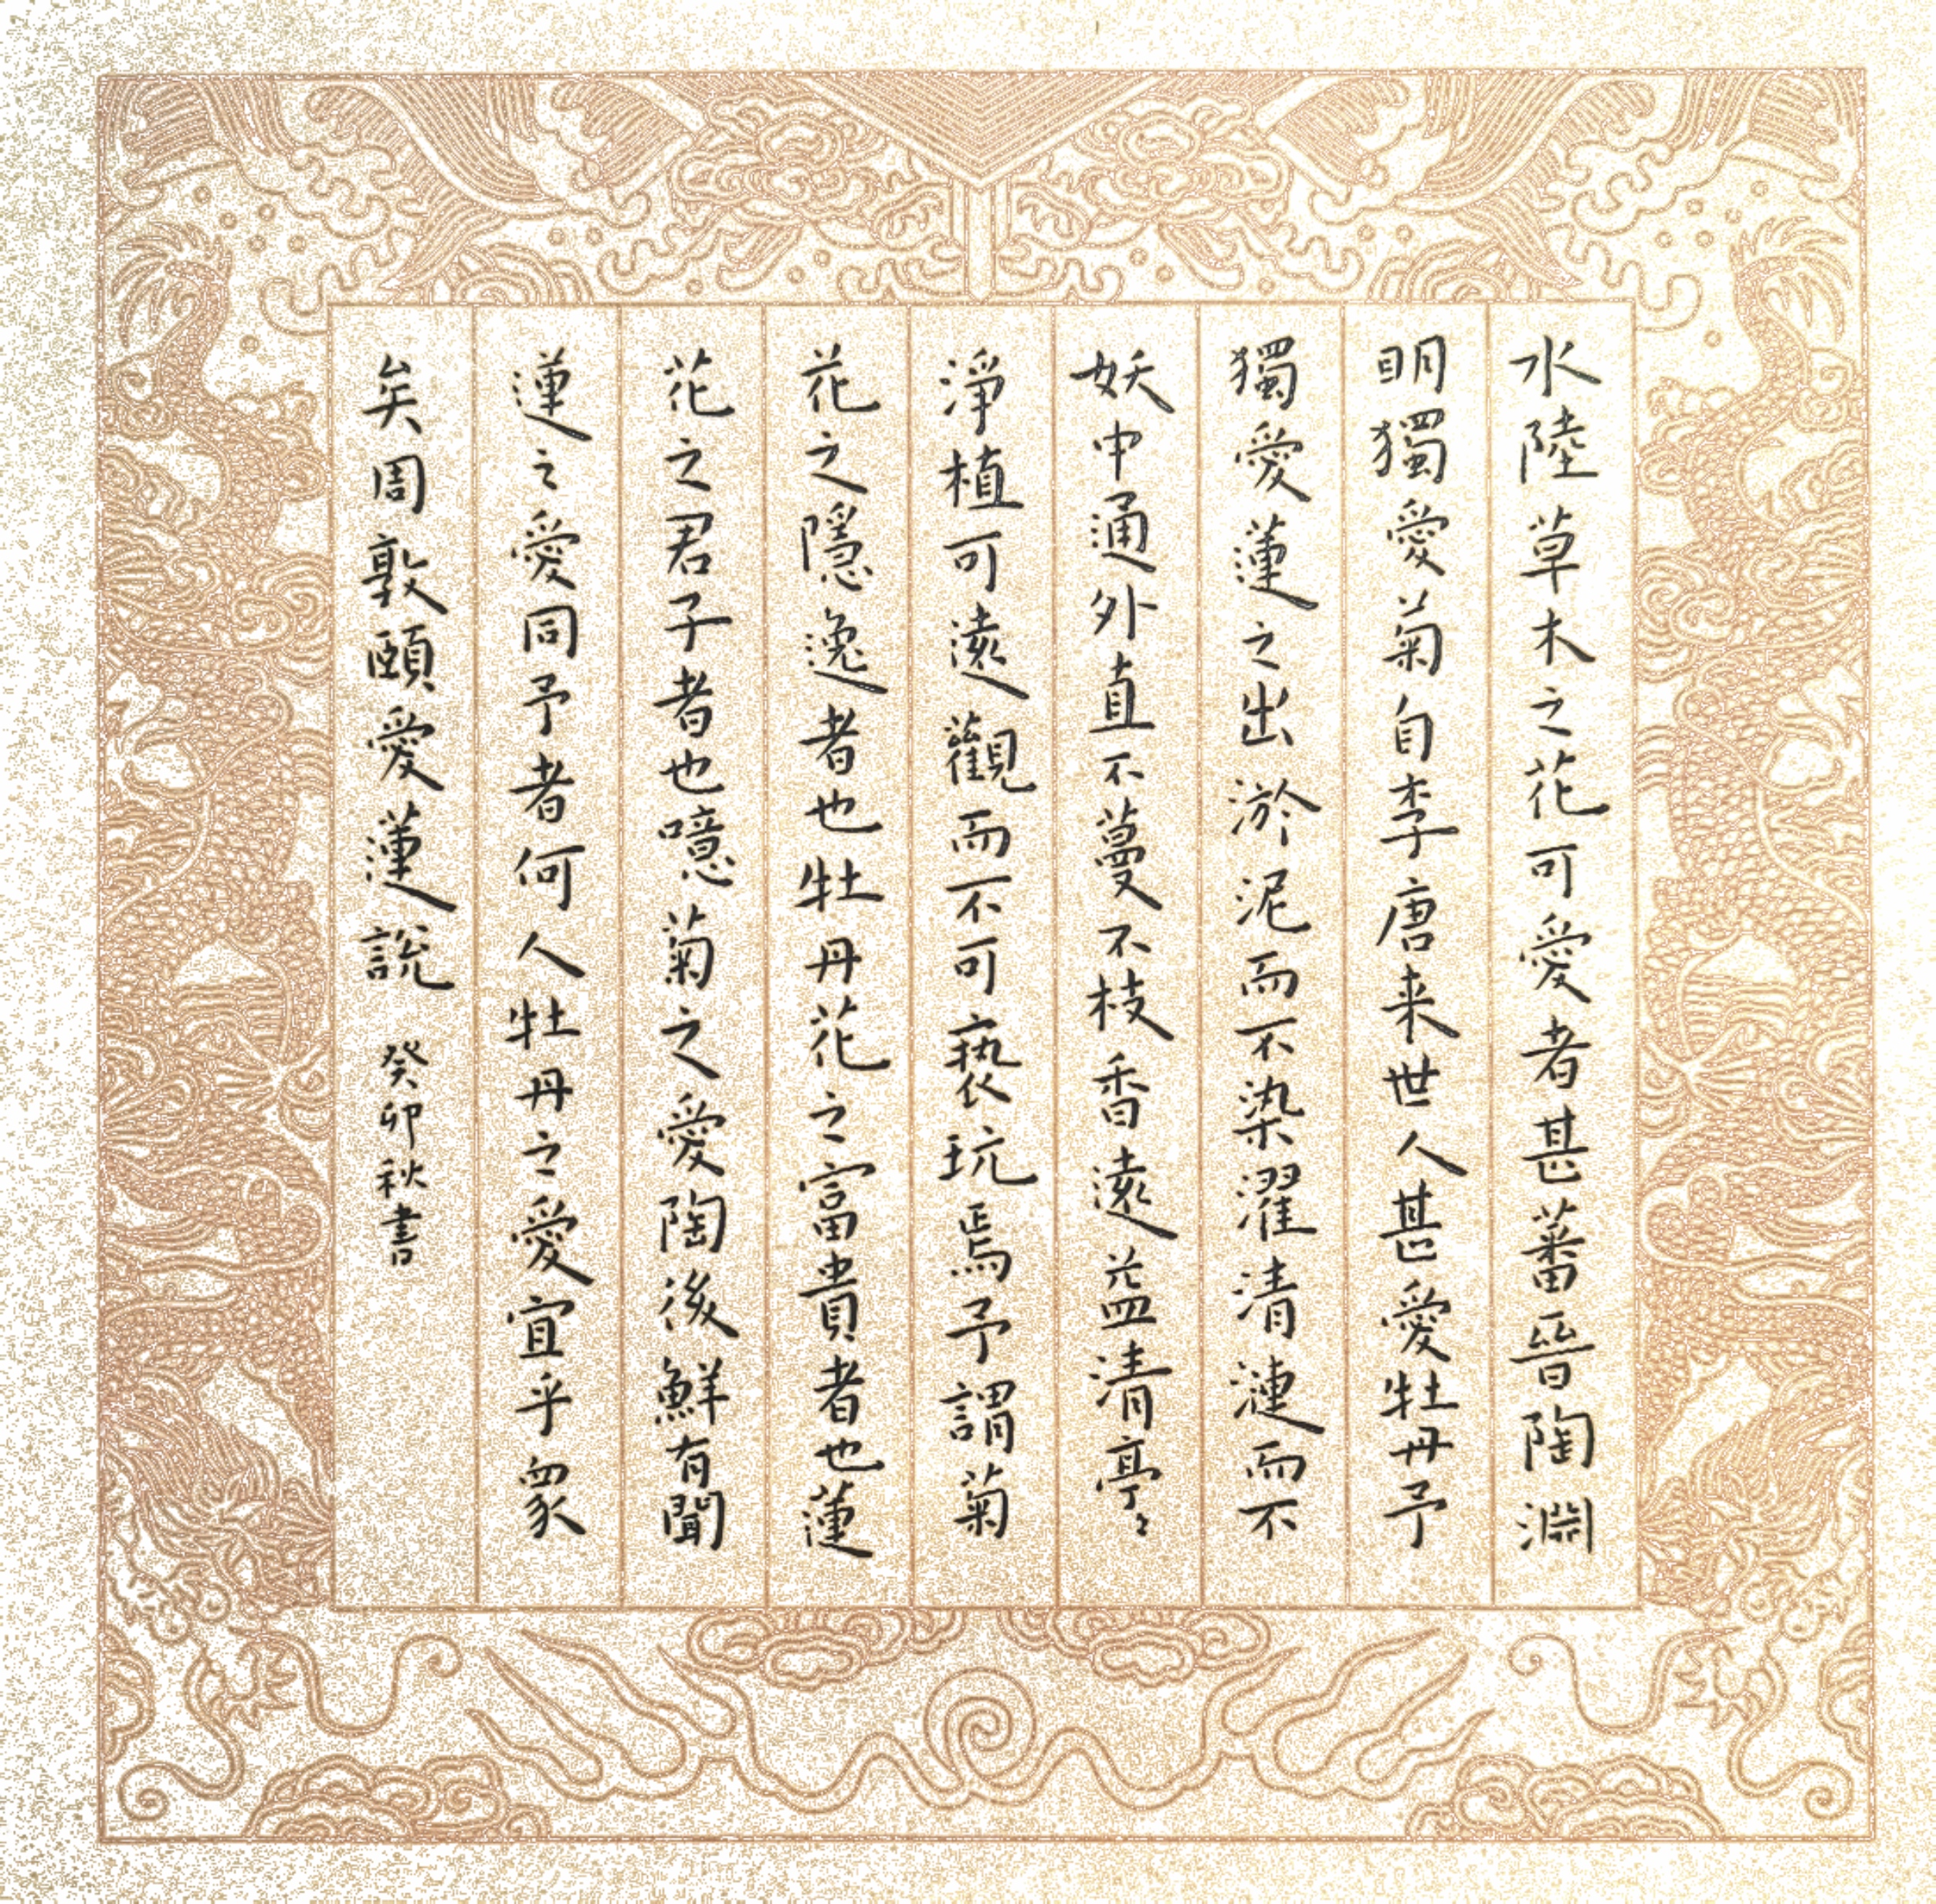 水陸草木之花可愛者甚蕃晉陶淵
明獨愛菊自李唐来世人甚愛牡丹予
獨愛蓮之出淤泥而不染濯清漣而不
妖中通外直不蔓不枝香遠益清亭〻
淨植可遠觀而不可褻玩焉予謂菊
花之隱逸者也牡丹花之富貴者也蓮
花之君子者也噫菊之愛陶後鮮有聞
蓮之愛同予者何人牡丹之愛宜乎眾
矣周敦頤愛蓮說 癸卯秋書